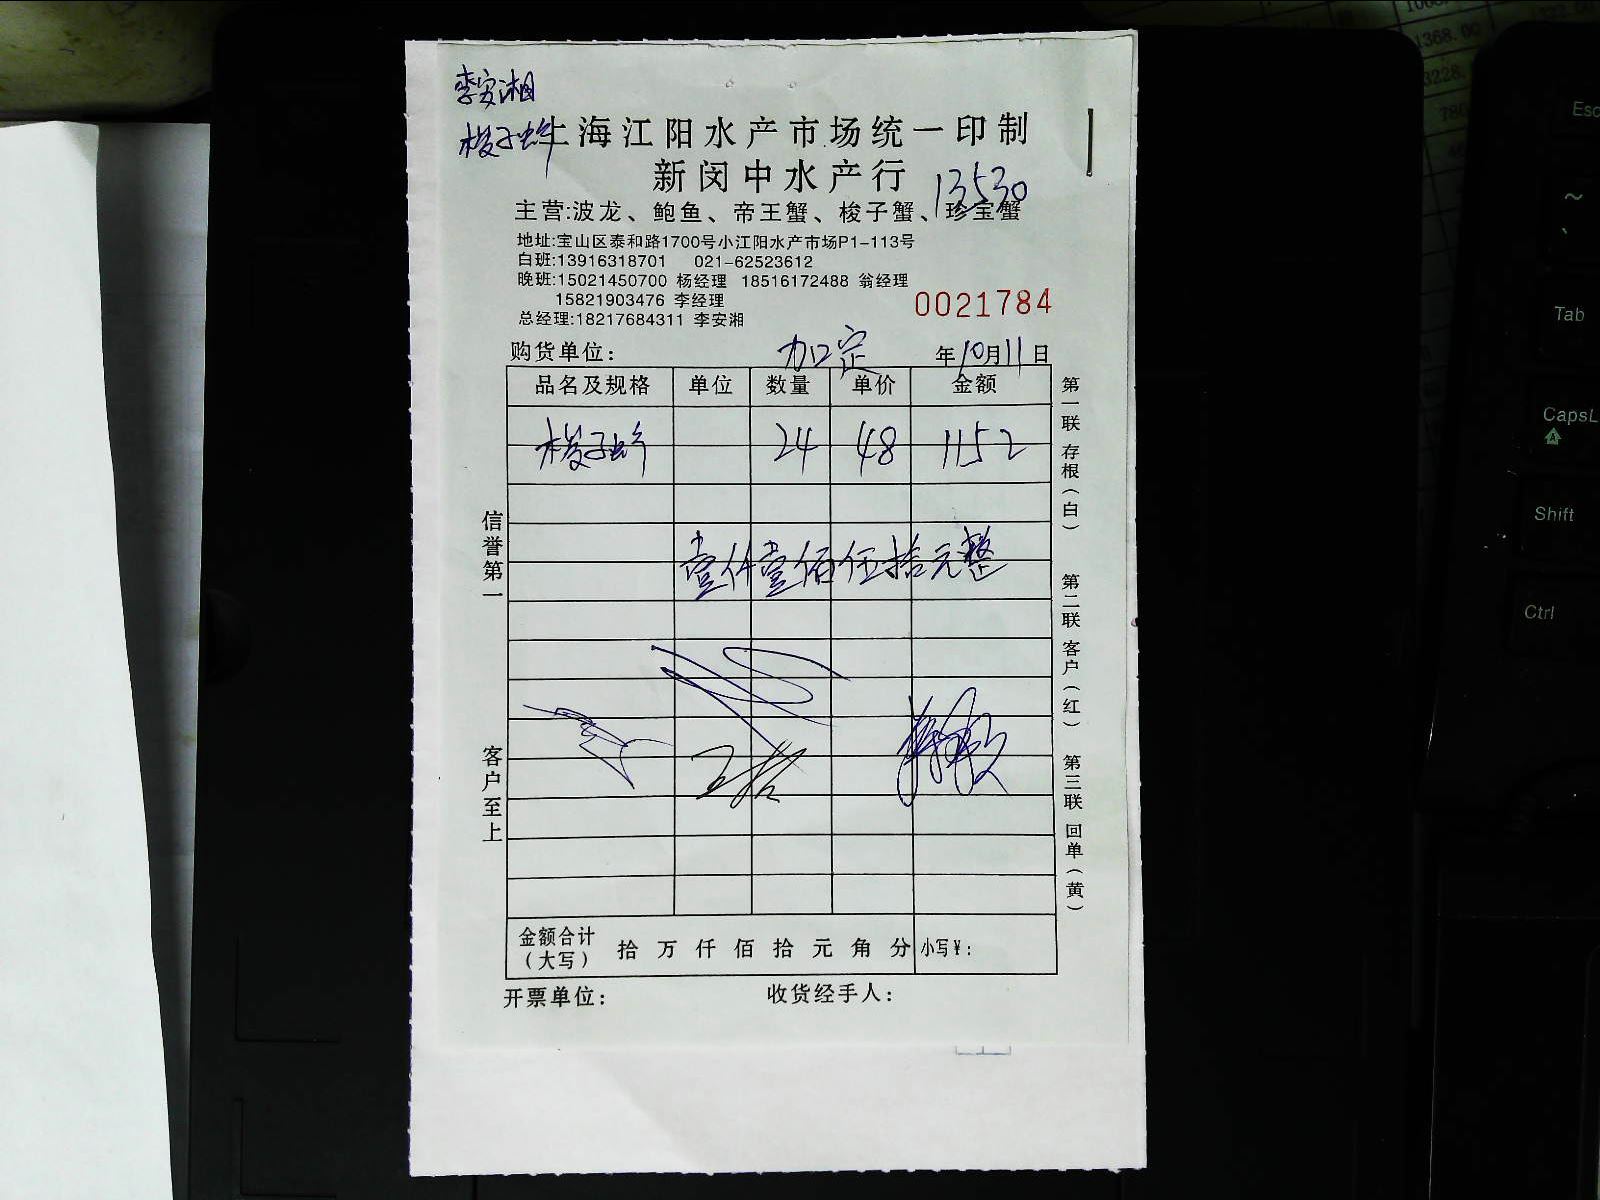 李安湘
梭子蚌
上海江阳水产市场统一印制
新闵中水产行
13530
主营:波龙、鲍鱼、帝王蟹、梭子蟹、珍宝蟹
地址:宝山区泰和路1700号小江阳水产市场P1-113号
白班:13916318701 021-62523612
晚班:15021450700 杨经理 18516172488 翁经理
15821903476 李经理
总经理:18217684311 李安湘
0021784
购货单位: 加定 年10月11日
品名及规格 单位 数量 单价 金额
梭子蚌 24 48 1152
壹仟壹佰伍拾元整
信誉第一
客户至上
第一联 存根(白)
第二联 客户(红)
第三联 回单(黄)
金额合计(大写) 拾 万 仟 佰 拾 元 角 分 小写¥:
开票单位: 收货经手人:
1368.00
3228.
Esc
~
、
Tab
CapsL
A
Shift
Ctrl